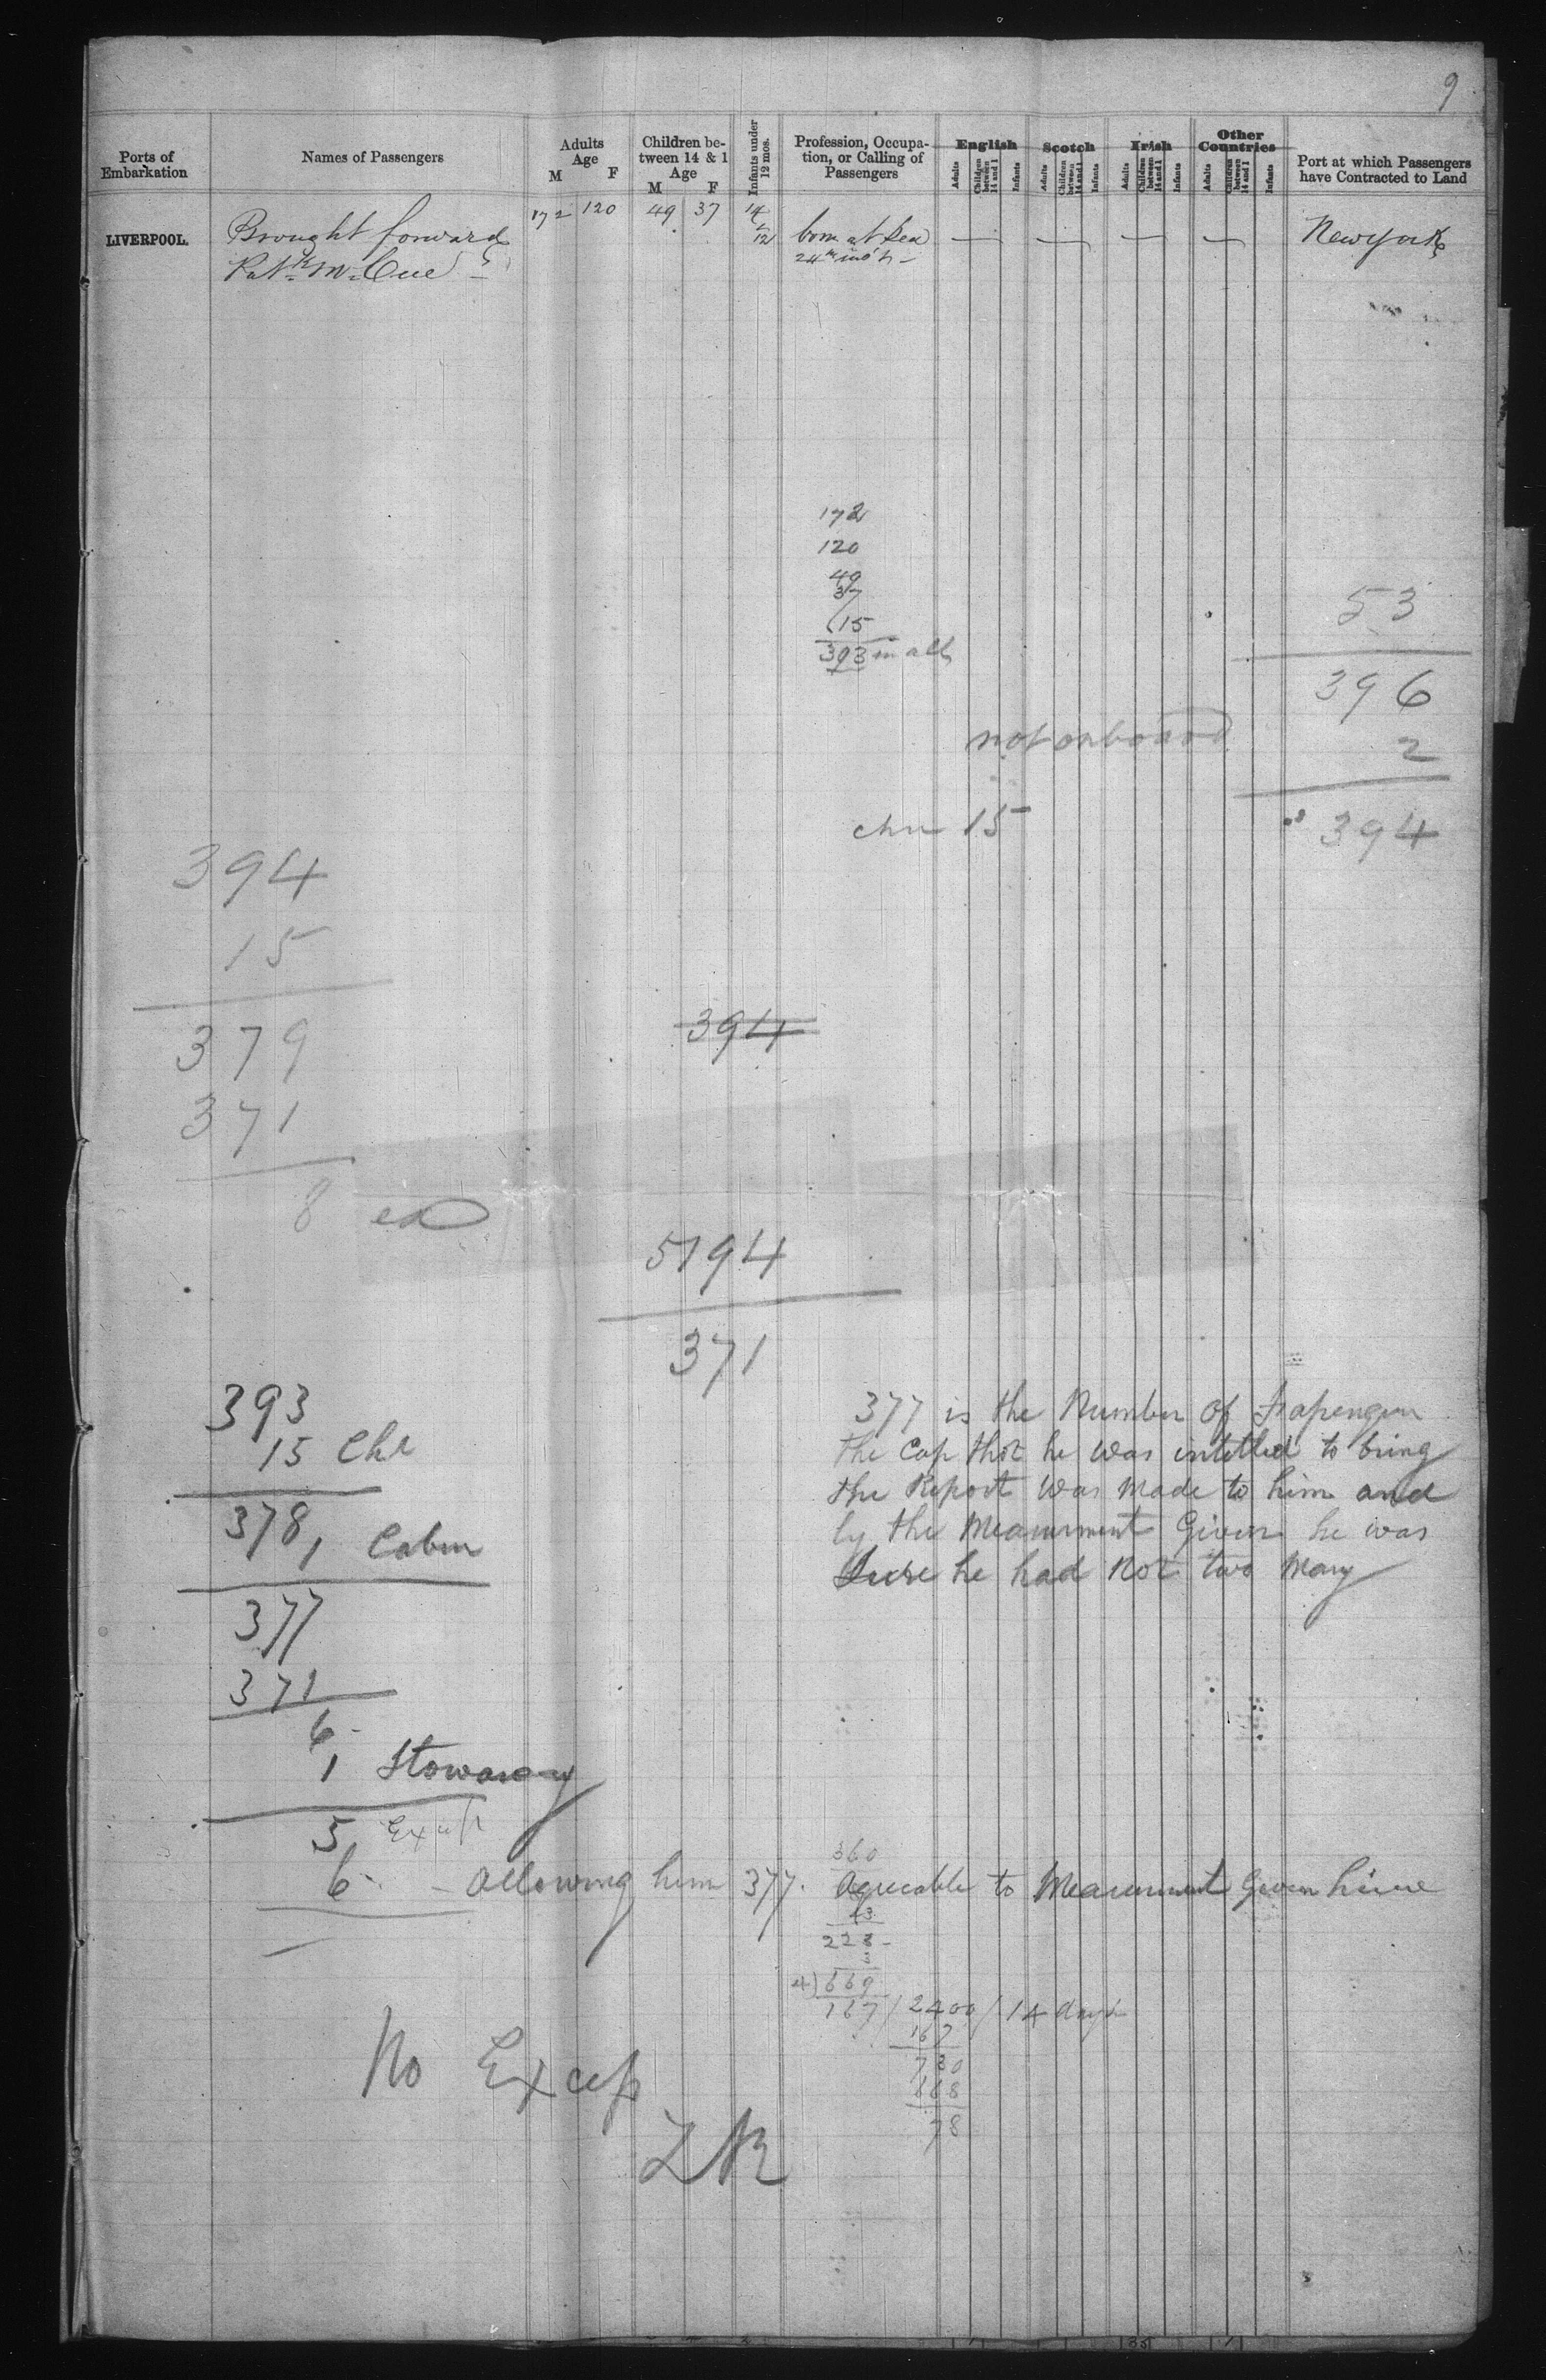 9
Ports of Embarkation
Names of Passengers
Adults Age M F
Children between 14 & 1 Age M F
Infants under 12 mos.
Profession, Occupation, or Calling of Passengers
English Adults Children between 14 and 1 Infants
Scotch Adults Children between 14 and 1 Infants
Irish Adults Children between 14 and 1 Infants
Other Countries Adults Children between 14 and 1 Infants
Port at which Passengers have Contracted to Land
LIVERPOOL. Brought forward 172 120 49 37 14 born at Sea — — — — New York
Patk McCue — 24th
172
120
49
37
15
393 in all
53
396
not onboard 2
chn 15 394
394
15
379
371
8
394
5194
371
393
15 Chl
378
1 Cabin
377
371
6
1 Stowaway
5
6 - allowing him 377. Agreeable to Measurment Given hime
377 is the Number of Passengers
the Cap that he was intitled to bring
the Report was made to him and
by the Measurment Given he was
Sure he had Not two Many
360
43
228
3
4) 669
167 / 2400 / 14 days
167
730
668
78
No Excep